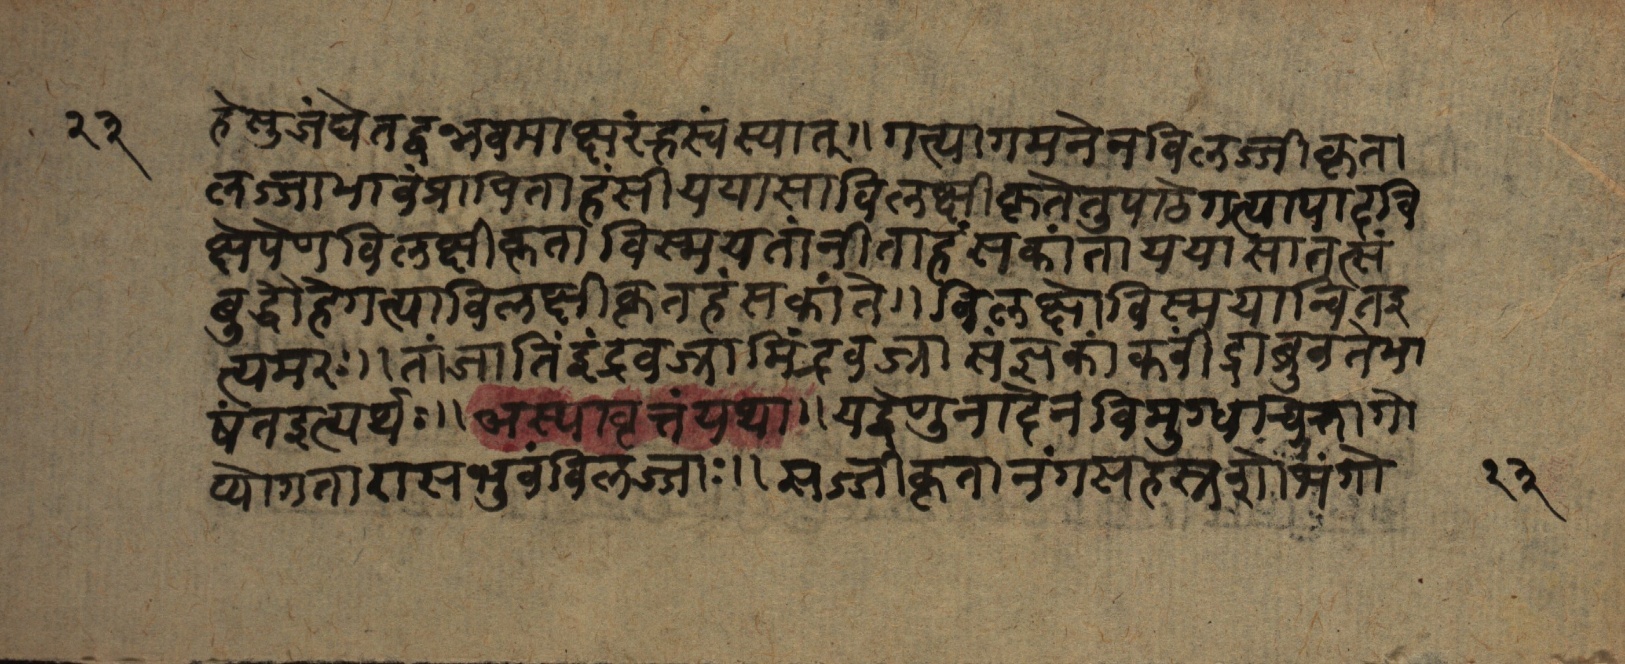 २३ हेसुजंघेतद्वन्नवमाक्षरंह्रस्वंस्यात्॥ गत्यागमनेनविलज्जीकृता
लज्जाभावंप्रापिताहंसीययासाविलक्षीकृतेतुपाठेगत्यापादवि
क्षेपेणविलक्षीकृताविस्मयतांनीताहंसकांताययासातत्सं
बुद्धौहेगत्याविलक्षीकृतहंसकांते॥ विलक्षोविस्मयान्वितइ
त्यमरः॥ तांजातिंइंद्रवज्रामिंद्रवज्रासंज्ञकांकवींद्राब्रुवतेभा
षंतइत्यर्थः॥ अस्यावृत्तंयथा॥ यद्वेणुनादेनविमुग्धचित्तागो
प्योगतारासभुवंविलज्जाः॥ सज्जीकृतानंगसहस्रशोभंगो २३